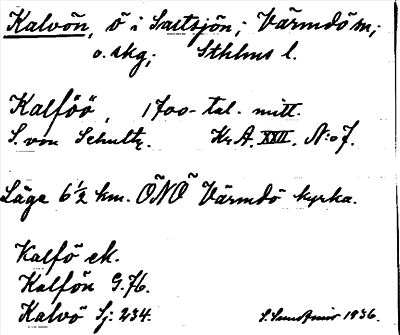 Kalvön, ö i Saltsjön; Värmdö sn;
o. skg; Sthlms l.
Kalföö, 1700-tal. mitt.
S. von Schultz. Kr. A. XXII. N:o 7.
Läge 6 1/2 km. ÖNÖ Värmdö kyrka.
Kalfö ek.
Kalfön G.76.
Kalvö Sj: 234.
1936.